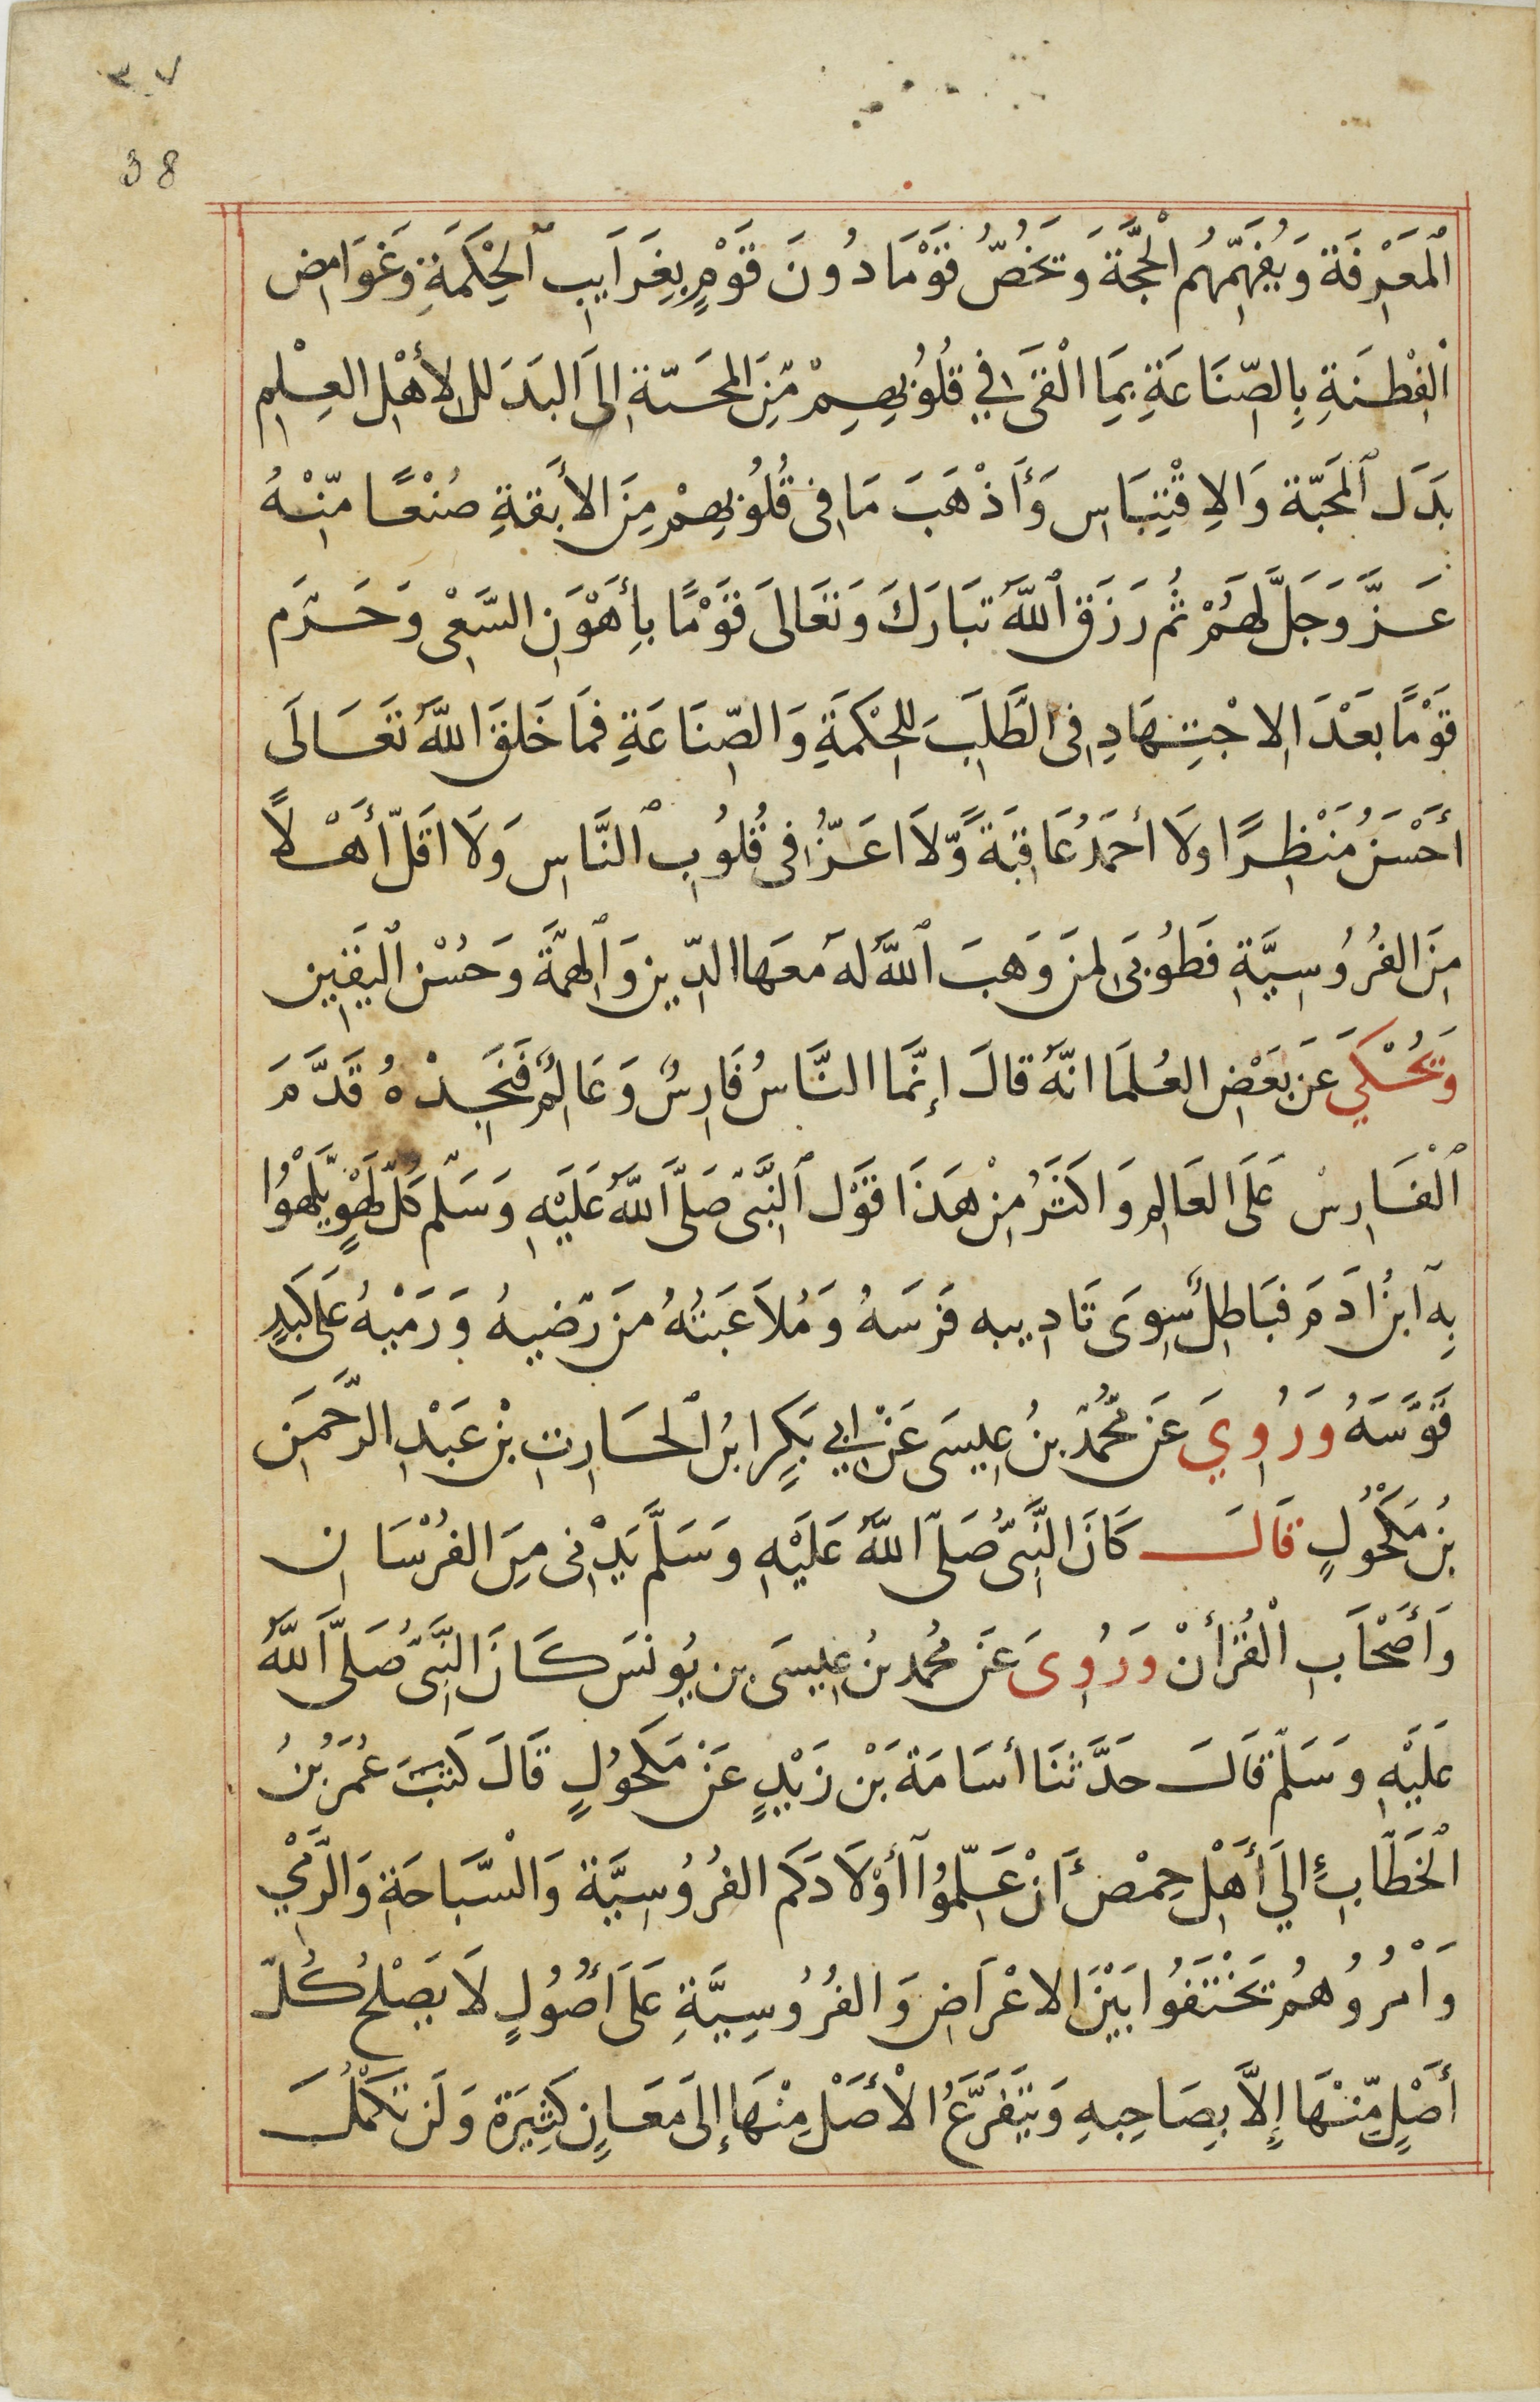 ٣٧
38
ٱلْمَعْرِفَة وَيُفَهِّمُهُم الْحُجَّةَ وَيَخُصُّ قَوْمَا دُونَ قَوْمٍ بِغَرَايِبِ ٱلْحِكْمَةِ وَغَوَامِضِ
الْفِطْنَةِ بِالصِّنَاعَةِ بِمَا الْقَى فِي قُلُوبِهِمْ مِّنَ المحَسّة إلَى البَدَ لل لأهْلِ العِلْمِ
بَدَل ٱلمَحَبّة وَالاِقْتِبَاسِ وَأَذْهَبَ مَا فِى قُلُوبِهِمْ مِنَ الأَبقةِ صُنْعًا مّنْهُ
عَزَّ وَجَلَّ لَهُمْ ثُم رَزَقَ ٱللَّهُ تبَارَكَ وَتَعَالىَ قَوْمًا بأِهْوَنِ السَّعْىِ وَحَرَم
قَوْمًا بَعْدَ الِاجْتِهَادِ فِى الطَّلَبِ لِلحِكْمَةِ وَالصِّنَاعَةِ فَمَا خَلَقَ اللَّهُ تَعَالَى
أحْسَنُ مَنْظِرًا ولَا أحمَدُ عَاقِبَةً وَّلَا اعَزُّ فِى قُلُوبِ ٱلنَّاسِ وَلَا اقَلّ أَهْلاً
مِنَ الفُرُوسِيَّةِ فَطُوبىَ لِمَن وَهبَ ٱللَّهُ لَهُ مَعَهَا الدِّين وَٱلهِمَّةَ وَحُسْنِ ٱليَقِين
وَيُحْكَي عَن بَعْضِ العُلَمَا انَّهُ قالَ إنَّمَا النَّاسُ فَارِسٌ وَعَالِمٌ فَنَجِدْهُ قَدَّمَ
ٱلْفَارِسْ عَلَى العَالِم وَاكَثَرُ مِنْ هَذَا قَوْل ٱلنَّبىّ صَلَّى اللَّهُ عَلَيْهِ وَسَلّم كُلّ لَهْوٍ يَّلْهُوُا
بِهِ ابنُ ادَمَ فبَاطِلٌ سِوىَ تَادِيبه فَرَسَهُ وَمُلاَعَبَتُهُ مَن رّضيهُ وَرَمْيهُ عَلى كَبَدِ
قَوَّسَهُ وَرُوِيَ عَن مُحُمّدَ بنُ عِيسَى عَنْ ابِي بَكِرٍ ابنُ ٱلحَارِثِ بْنِ عَبْدِ الرَّحمَن
بُن مَكْحُولٍ قَالَ كَانَ النَّبىُّ صَلّى اللَّهُ عَلَيْهِ وَسَلَّم يَدْنِى مِنَ الفُرْسَانِ
وَأَصْحَابِ الْقُرأنْ وَرُوِىَ عَن مُحمد بنُ عِيسَى بن يُونسَ كَانَ النَّبىُّ صَلَّى اللَّهُ
عَلَيْهِ وَسَلّم قَالَ حَدَّثَنَا أسَامَة بَنْ زَيْدٍ عَنْ مَكحُولٍ قَالَ كَتبَ عُمَرُ بْنُ
الْخَطَّابِ إلَي أَهْلِ حِمْصَ أنْ عَلّمُوا أوْلَادَكم الفُرُوسِيَّة وَالسّبَاحَةِ وَالرَّمْي
وَامُرُوهُم يَخْتَفُوا بَيْنَ الاعْرَاضِ وَالفُرُوسِيَّةِ عَلَى أصُولٍ لَا يَصْلحُ كُلّ
أصْلٍ مِّنْهَا إِلاَّ بِصَاحِبهِ وَيَتَفَرَّعُ الْأصَلْ مِنْهَا إلَى مَعَانٍ كَثِيَرة وَلَن تكْمُلَ